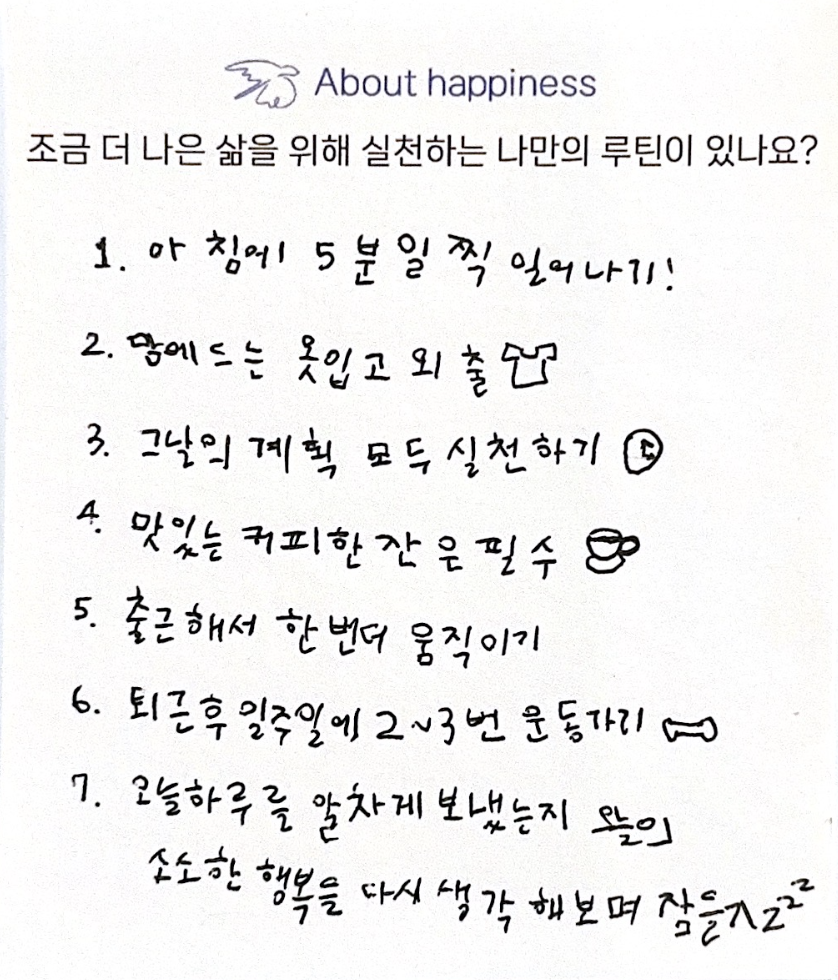 About happiness
조금 더 나은 삶을 위해 실천하는 나만의 루틴이 있나요?
1. 아침에 5분 일찍 일어나기!
2. 맘에 드는 옷입고 외출
3. 그날의 계획 모두 실천하기
4. 맛있는 커피한잔은 필수
5. 출근해서 한번더 움직이기
6. 퇴근후 일주일에 2~3번 운동가기
7. 오늘하루를 알차게 보냈는지 오늘의
소소한 행복을 다시 생각해보며 잠들기 zzz